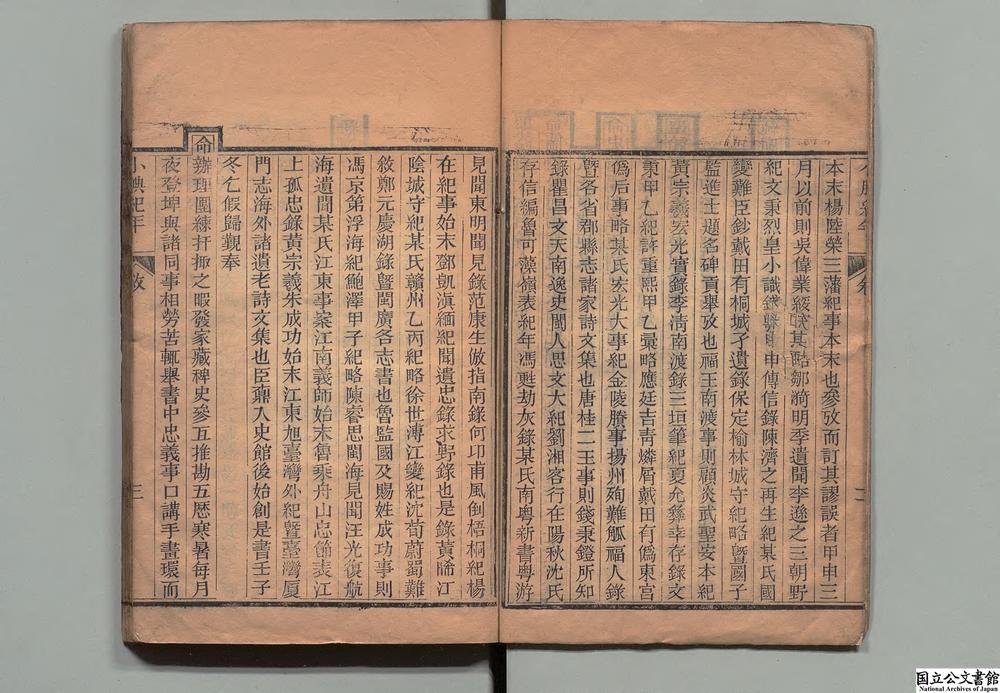 本末楊陸榮三藩紀事本末也參攷而訂其謬誤者甲申三
月以前則吳偉業綏寇其略鄒漪明季遺聞李遜之三朝野
紀文秉烈皇小識錢 甲申傳信錄陳濟之再生紀某氏國
變難臣鈔戴田有桐城孑遺錄保定榆林城守紀略曁國子
監進士題名碑貢舉攷也福王南渡事則顧炎武聖安本紀
黃宗羲宏光實錄李清南渡錄三垣筆紀夏允彝幸存錄文
秉甲乙紀許重熙甲乙彙略應廷吉靑燐屑戴田有僞東宮
僞后事略某氏宏光大事紀金陵賸事揚州殉難觚福人錄
曁各省郡縣志諸家詩文集也唐桂二王事則錢秉鐙所知
錄瞿昌文天南逸史閩人思文大紀劉湘客行在陽秋沈氏
存信編魯可藻嶺表紀年馮甦劫灰錄某氏南粤新書粤游
見聞東明聞見錄范康生倣指南錄何印甫風倒梧桐紀楊
在紀事始末鄧凱滇緬紀聞遺忠錄求野錄也是錄黃晞江
陰城守紀某氏贛州乙丙紀略徐世溥江變紀沈荀蔚蜀難
敘鄭元慶湖錄曁閩廣各志書也魯監國及賜姓成功事則
馮京第浮海紀鮑澤甲子紀略陳睿思閩海見聞汪光復航
海遺聞某氏江東事案江南義師始末魯乘舟山忠節表江
上孤忠錄黃宗羲朱成功始末江東旭臺灣外紀曁臺灣厦
門志海外諸遺老詩文集也臣鼒入史館後始創是書壬子
冬乞假歸覲奉
命辦理團練扞掫之暇發家藏稗史參互推勘五歷寒暑每月
夜登埤與諸同事相勞苦輒舉書中忠義事口講手畫環而
小腆紀年
敘
三
国立公文書館
National Archives of Japan